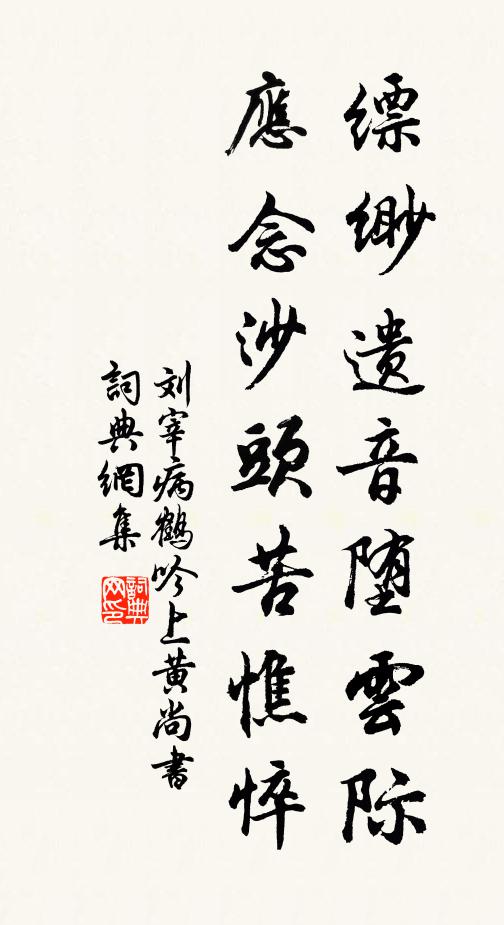 缥缈遗音堕雲际
應念沙頭苦憔悴
刘宰病鶴吟上黄尚書
詞典網集
詞典
网印